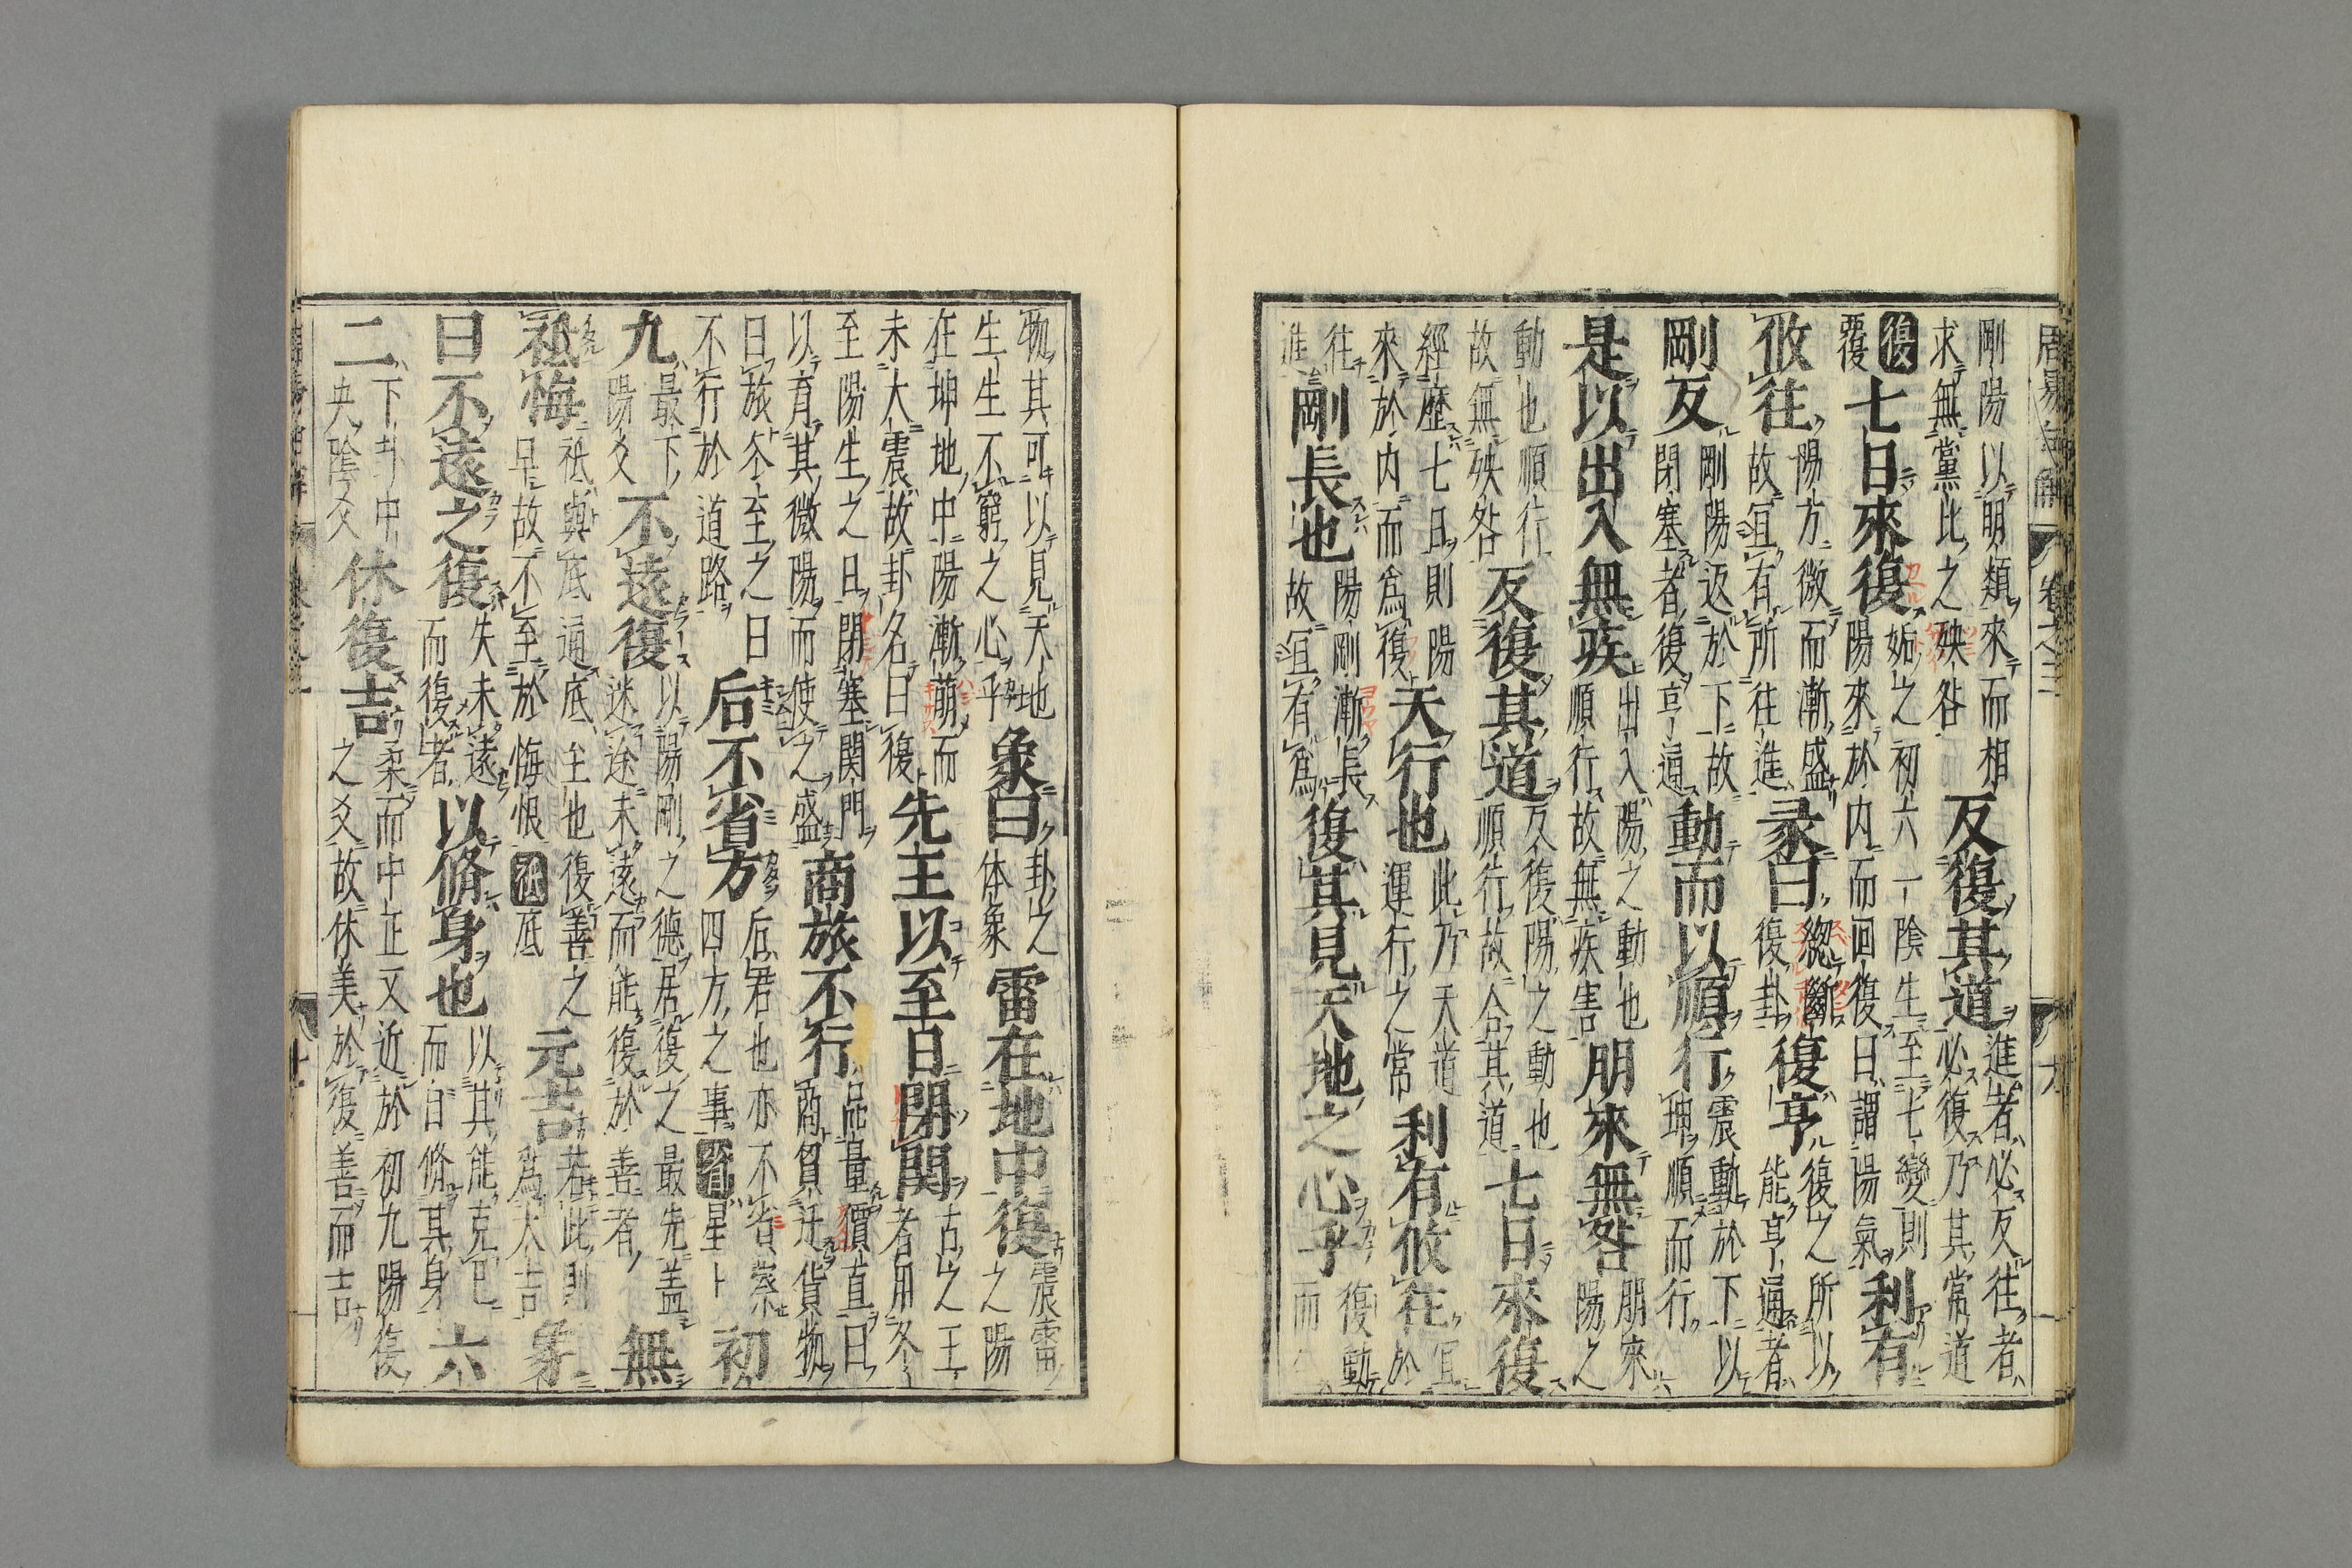 周易句解 卷之三 九
剛陽以明類來而相
求無黨比之殃咎
反復其道
進者必反往者
必復乃其常道
復
覆
七日來復
姤之初六一陰生至七變則
陽來於内而回復日謂陽氣
利有
攸往
陽方微而漸盛
故宜有所往進
彖曰
總斷
復卦
復亨
復之所以
能亨通者
剛反
剛陽返於下故
閉塞者復亨通
動而以順行
震動於下以
坤順而行
是以出入無疾
出入陽之動也
順行故無疾害
朋來無咎
朋來
陽之
動也順行
故無殃咎
反復其道
反復陽之動也
順行故合其道
七日來復
經歷七日則陽
來於内而為復
天行也
此乃天道
運行之常
利有攸往
宜
於
往
進
剛長也
陽剛漸長
故宜有為
復其見天地之心乎
復動
而
物其可以見天地
生生不窮之心乎
象曰
卦之
体象
雷在地中復
震雷
之陽
在坤地中陽漸萠而
未大震故卦名曰復
先王以至日閉関
古之王
者用冬
至陽生之日閉塞関門
以育其微陽而使之盛
商旅不行
品量價直曰
商貿迁貨物
曰旅冬至之日
不行於道路
后不省方
后君也亦不省察
四方之事省星上
初
九
最下
陽爻
不遠復
以陽剛之德居復之最先盖
迷途未遠而能復於善者
無
祗悔
祗與底通底至也復善之
早故不至於悔恨祗底
元吉
若此則
為大吉
象
曰不遠之復
失未遠
而復者
以脩身也
以其能克己
而自脩其身
六
二
下卦中
央陰爻
休復吉
柔而中正又近於初九陽復
之爻故休美於復善而吉